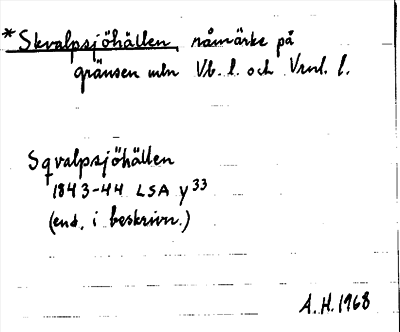 *Skvalpsjöhällen, råmärke på
gränsen mln Vb. l. och Vrml. l.
Sqvalpsjöhällen
1843-44 LSA y33
(end. i beskrivn.)
A.H. 1968